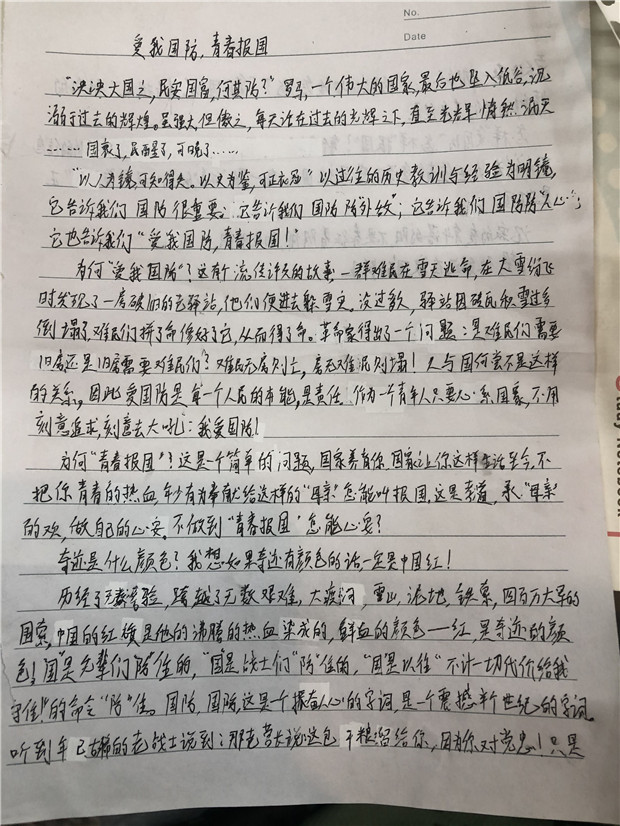 No.
Date
爱我国防,青春报国
"泱泱大国之,民实国富,何其防?"罗马,一个伟大的国家,最后也坠入低谷,沉
溺于过去的辉煌。虽强大但傲之,每天活在过去的光辉之下,直至光辉悄然泯灭
……国衰了,民醒了,可晚了……
"以人为镜,可知得失。以史为鉴,可正衣冠"以过往的历史教训与经验为明镜,
它告诉我们国防很重要;它告诉我们国防防"外敌";它告诉我们国防防"人心";
它也告诉我们"爱我国防,青春报国!"
为何"爱我国防"?这有个流传许久的故事,一群难民在雪天逃命,在大雪纷飞
时发现了一房破旧的老驿站,他们便进去躲雪灾。没过多久,驿站因破瓦积雪过多
倒塌了,难民们拼了命修好了它,从而得了命。革命家得出了一个问题:是难民们需要
旧房还是旧房需要难民们?难民无房则亡,房无难民则塌!人与国何尝不是这样
的关系。因此爱国防是每一个人民的本能,是责任。作为一个青年人只要心系国家,不用
刻意追求,刻意去大吼:我爱国防!
为何"青春报国"?这是个简单的问题,国家养育你,国家让你这样生活至今,不
把你青春的热血,年少有为奉献给这样的"母亲"怎能叫报国,这是孝道,承"母亲"
的欢,做自己的心安。不做到"青春报国"怎能心安?
奇迹是什么颜色?我想如果奇迹有颜色的话一定是中国红!
历经了无数苦验,跨越了无数艰难,大渡河,雪山,泥地,铁索,四百万大军的
围剿,中国的红旗是他的沸腾的热血染成的,鲜血的颜色—红,是奇迹的颜
色!国"是先辈们"防"住的,"国是战士们"防"住的,"国是以往"不计一切代价给我
守住!"的命令"防"住。国防,国防,这是个振奋人心的字词,是一个震撼半个世纪的字词。
听到年已古稀的老战士说到:那老营长说这包干粮留给你,因为你对党忠!只是